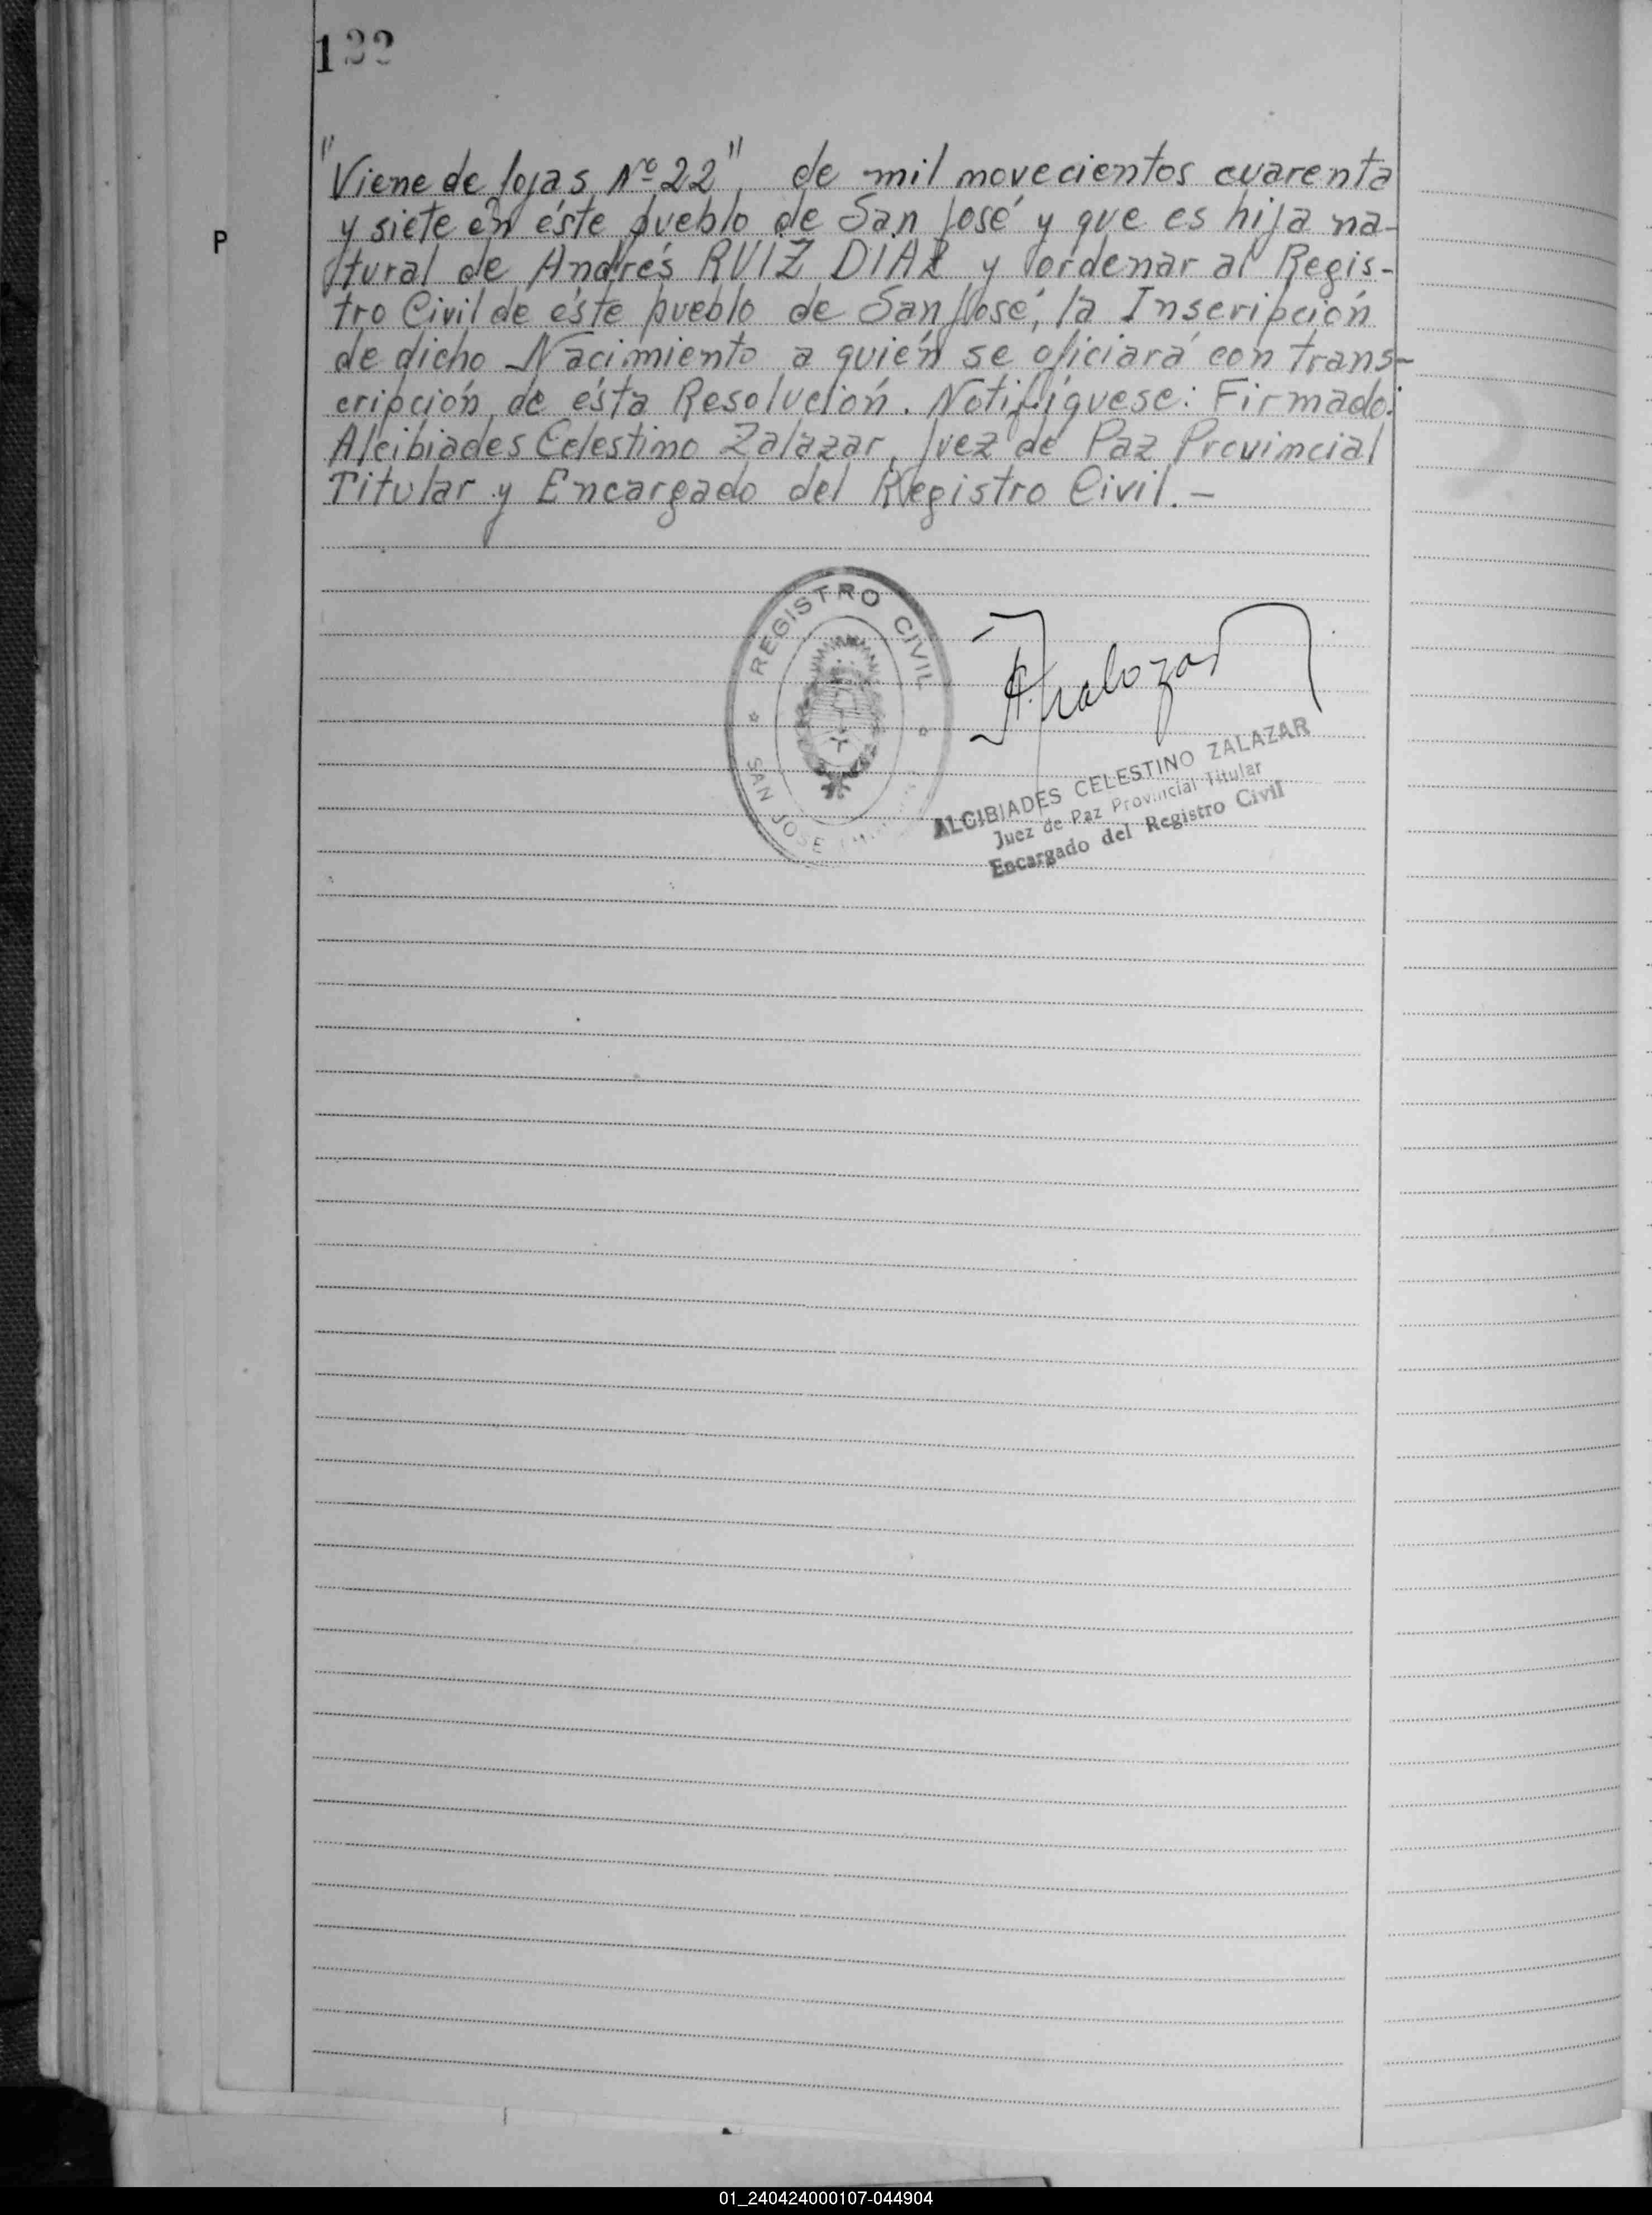 122
P
"Viene de fojas Nº 22", de mil novecientos cuarenta
y siete en éste pueblo de San José y que es hija na-
tural de Andrés RUIZ DIAZ y ordenar al Regis-
tro Civil de éste pueblo de San José, la Inscripción
de dicho Nacimiento a quién se oficiará con trans-
cripción de ésta Resolución. Notifíquese: Firmado:
Alcibiades Celestino Zalazar, Juez de Paz Provincial
Titular y Encargado del Registro Civil. -
REGISTRO CIVIL
SAN JOSE
A. Zalazar
ALCIBIADES CELESTINO ZALAZAR
Juez de Paz Provincial Titular
Encargado del Registro Civil
01_240424000107-044904